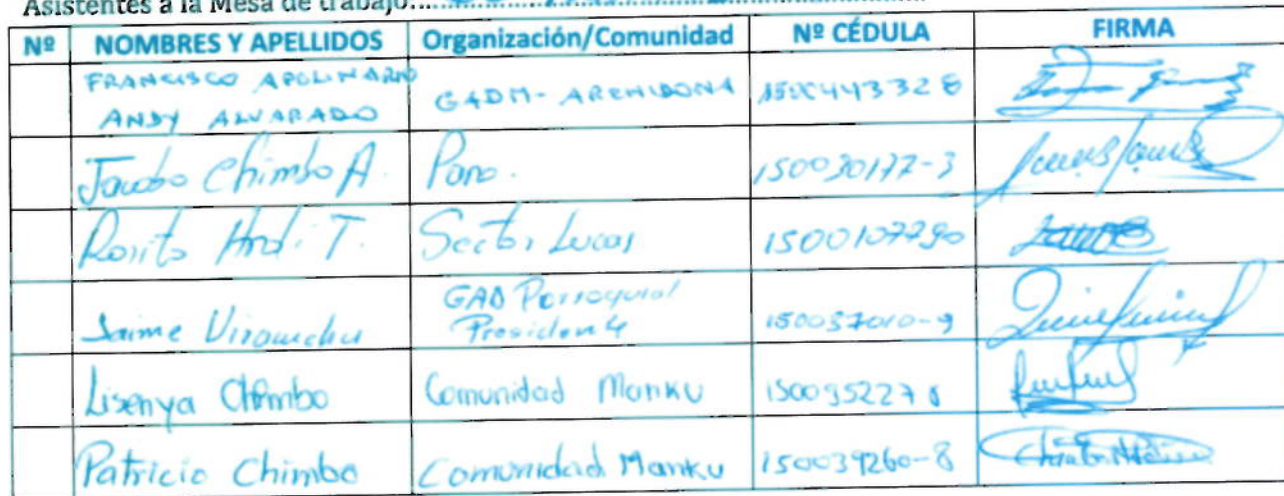 Asistentes a la Mesa de trabajo
Nº NOMBRES Y APELLIDOS Organización/Comunidad Nº CÉDULA FIRMA
FRANCISCO APOLINARIO
ANDY ALVARADO GADM-ARCHIDONA 1500443328
Jacobo Chimbo A. Pano. 150030177-3
Rosita And. T. Sector Lucas 1500107790
Jaime GAD Parroquial
Presidente 150037010-9
Lisenya Chimbo Comunidad Manku
Patricio Chimbo Comunidad Manku 150039260-8